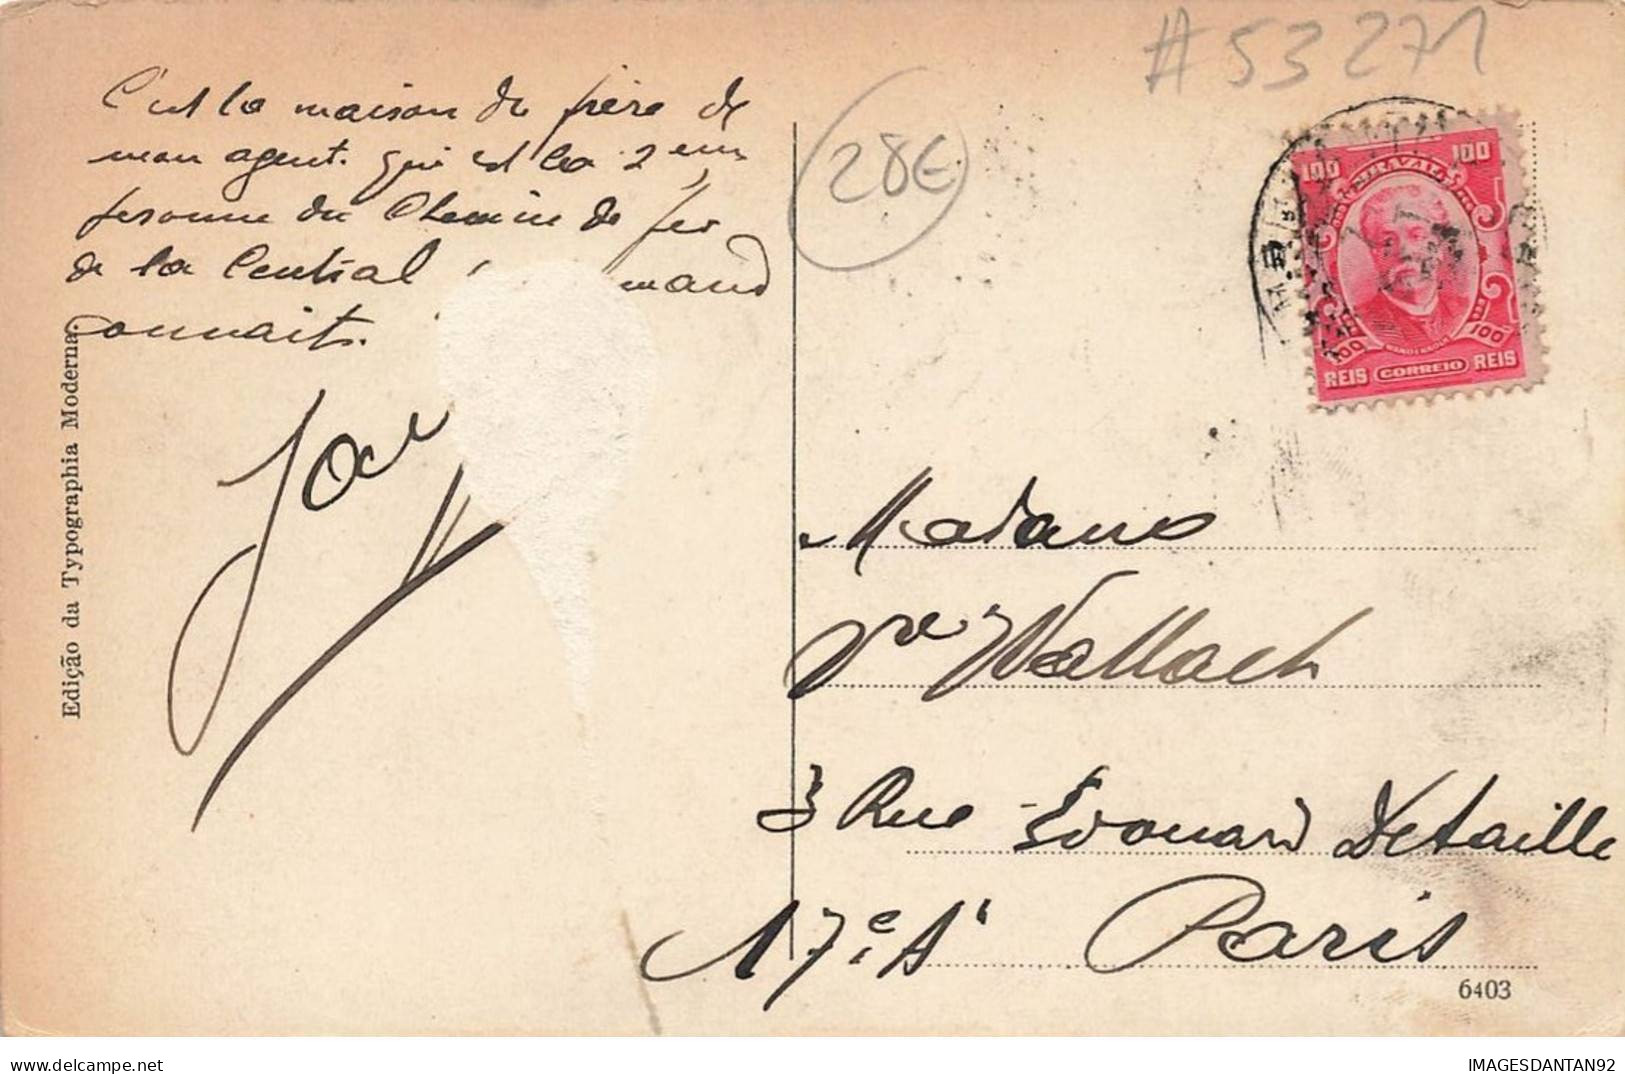 #53271
28€
C'est la maison du frère de
mon agent. qui est la 2 em
personne du Chemin de fer
de la Central mand
connait.
Edição da Typographia Moderna.
100 BRAZIL 100
100 WANDENKOLK 100
REIS CORREIO REIS
Madame
Wallach
3 Rue Edouard Detaille
17e Art Paris
6403
delcampe.net
IMAGESDANTAN92